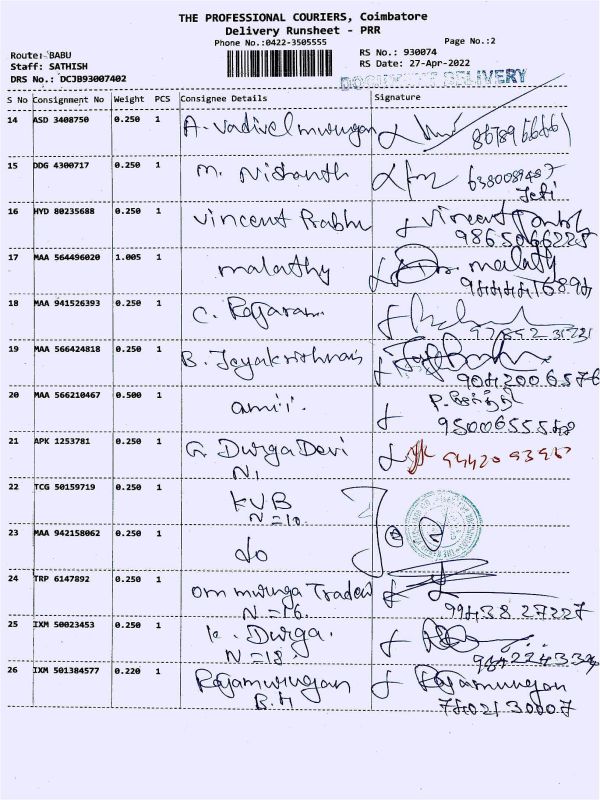 THE PROFESSIONAL COURIERS, Coimbatore
Delivery Runsheet - PRR
Phone No.:0422-3505555
Page No.:2
Route: BABU
Staff: SATHISH
DRS No.: DCJB93007402
RS No.: 930074
RS Date: 27-Apr-2022
DELIVERY
S No Consignment No Weight PCS Consignee Details Signature
14 ASD 3408750 0.250 1 A. Vadivelmurugan
15 DDG 4300717 0.250 1 M. Nishanth
16 HYD 80235688 0.250 1 Vincent Prabhu Vincent
9865066225
17 MAA 564496020 1.005 1 malathy malathy
18 MAA 941526393 0.250 1 C. Rajaram
19 MAA 566424818 0.250 1 B. Jeyakrishnan
9042006576
20 MAA 566210467 0.500 1
21 APK 1253781 0.250 1 G. Durga Devi
22 TCG 50159719 0.250 1 KVB
N=10
23 MAA 942158062 0.250 1 do
24 TRP 6147892 0.250 1 om muruga Traders
N=16 9943827227
25 IXM 50023453 0.250 1 K. Durga.
N=18
26 IXM 501384577 0.220 1 Rajamurugan Rajamurugan
B.H 7402130007